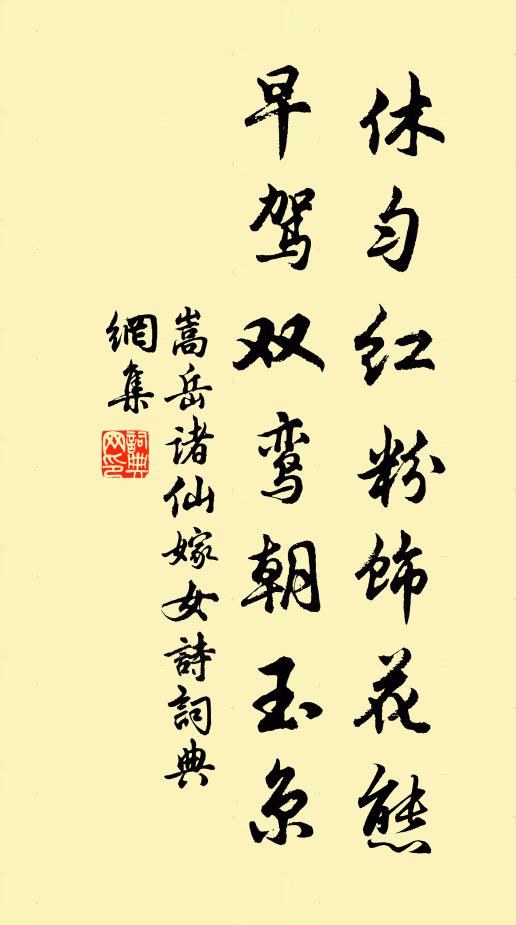 休匀红粉饰花態
早驾双鸾朝玉京
嵩岳诸仙嫁女詩詞典
網集
詞典網印